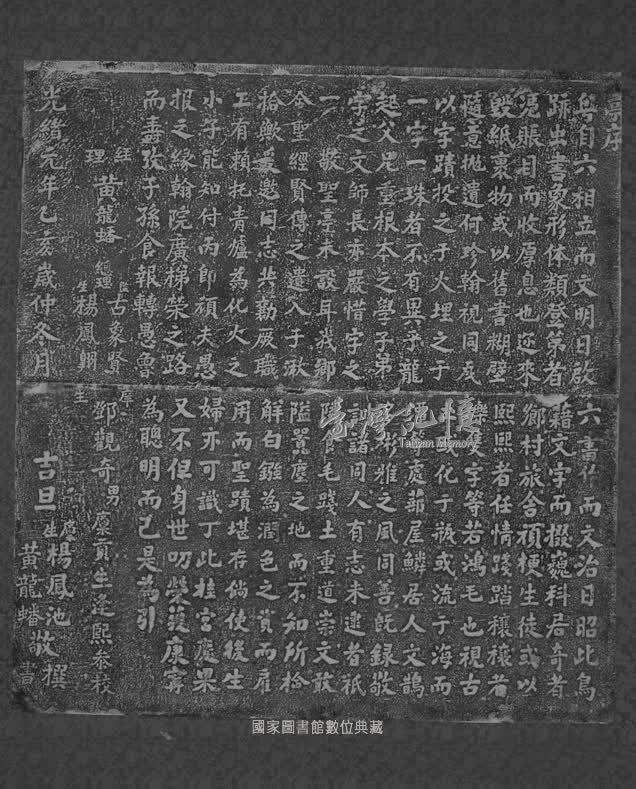 亭序
粵自六相立而文明日啟六書作而文治日昭此鳥
跡出書象形体類登第者藉文字而掇巍科居奇者
憑賬目而收厚息也迩來鄉村旅舍頑梗生徒或以
毀紙裹物或以舊書糊壁熙熙者任情踐踏穰穰者
隨意拋遺何珍翰視同瓦礫隻字等若鴻毛也視古
以字蹟投之于火埋之于或化于瓶或流于海而
一字一珠者不有異乎龍處茆屋鱗居人文鵲
起父兄重根本之學子弟彬雅之風同善既録敬
字之文師長亦嚴惜字之訓諸同人有志未逮者祇
一敬聖亭未設耳我鄉食毛踐土重道崇文敢
令聖經賢傳之遺入于湫隘囂塵之地而不知所檢
拾歟爰邀同志共勸厥職解白鏹為潤色之資而雇
工有賴托青爐為化火之用而聖蹟堪存倘使後生
小子能知付丙即頑夫愚婦亦可識丁此桂宮慶果
报之緣翰院廣梯榮之路又不但身世叨榮獲康寧
而壽攷子孫食報轉愚魯為聰明而已是為引
經理 黄龍蟠 總理 監生 古象賢 楊鳳翔 庠生 鄧觀奇 男 廩貢生逢熙參校
光緒元年乙亥歲仲冬月 吉旦 廩生 楊鳳池敬撰
黃龍蟠敬書
臺灣記憶
Taiwan Memory
國家圖書館數位典藏